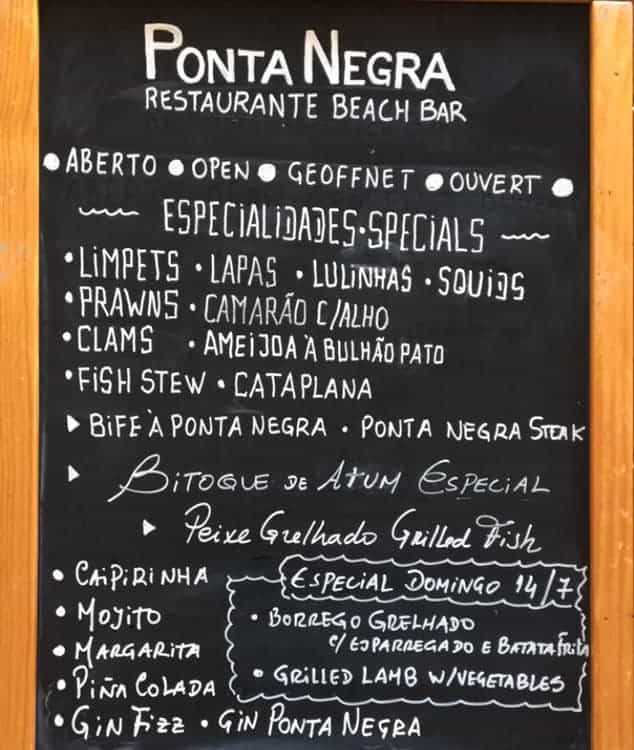 PONTA NEGRA
RESTAURANTE BEACH BAR
• ABERTO • OPEN • GEOFFNET • OUVERT •
ESPECIALIDADES·SPECIALS
• LIMPETS • LAPAS • LULINHAS • SQUIDS
• PRAWNS • CAMARÃO C/ALHO
• CLAMS • AMEIJOA À BULHÃO PATO
• FISH STEW • CATAPLANA
▸ BIFE À PONTA NEGRA • PONTA NEGRA STEAK
▸ BITOQUE DE ATUM ESPECIAL
▸ Peixe Grelhado Grilled Fish
• CAIPIRINHA
• MOJITO
• MARGARITA
• PIÑA COLADA
• GIN FIZZ • GIN PONTA NEGRA
ESPECIAL DOMINGO 14/7
• BORREGO GRELHADO
C/ ESPARREGADO E BATATA FRITA
• GRILLED LAMB W/VEGETABLES